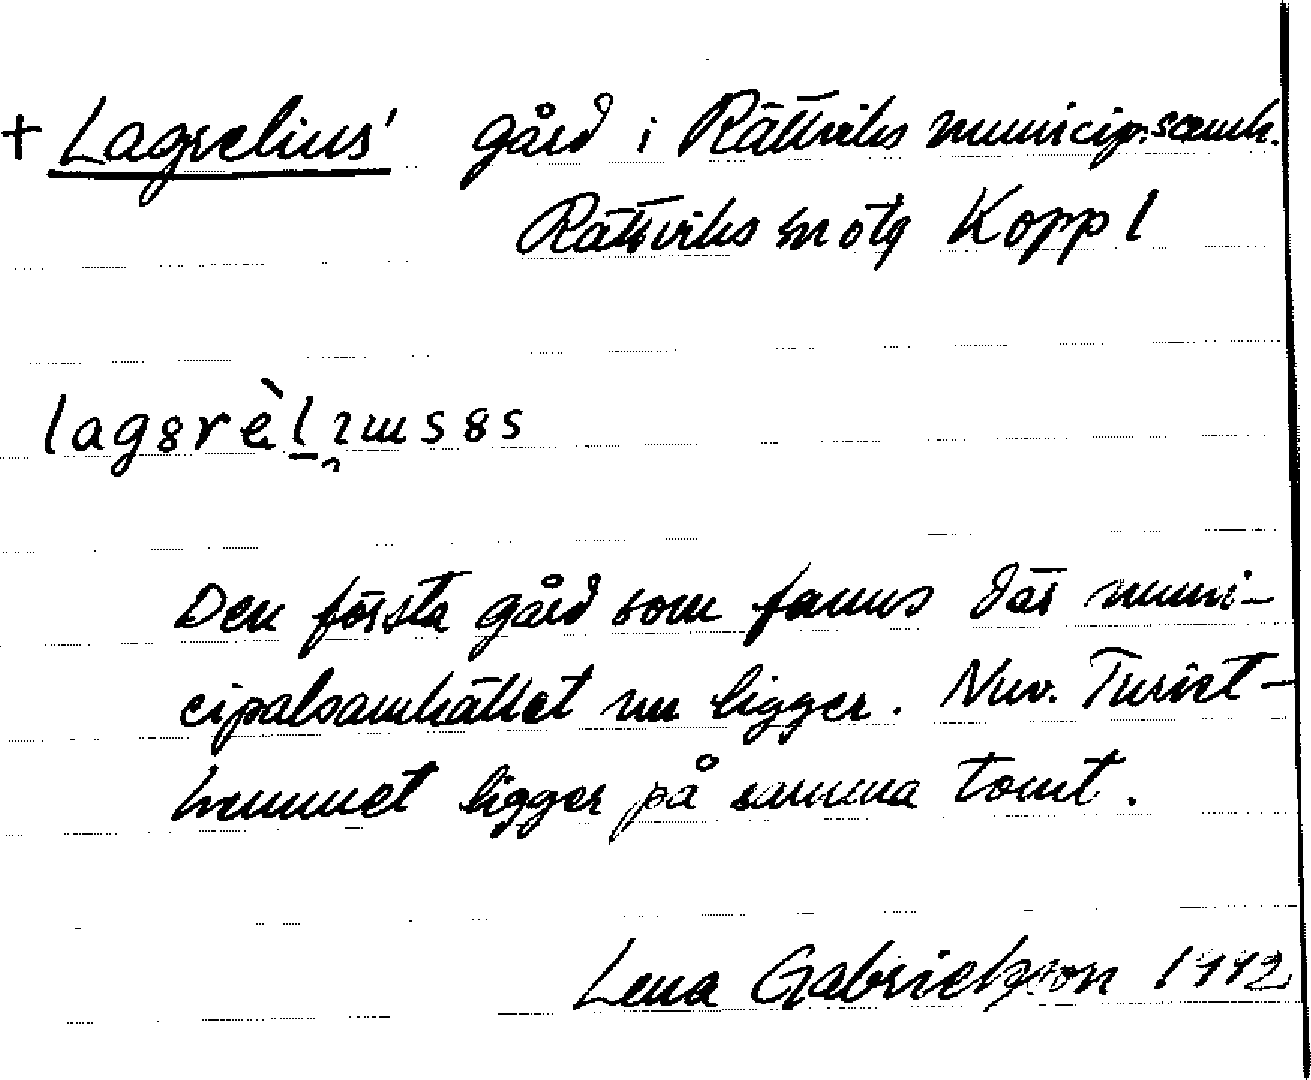 + Lagrelius' gård i Rättviks municip.samh.
Rättviks sn ötg Kopp l
Den första gård som fanns där muni-
cipalsamhället nu ligger. Nuv. Turist-
hemmet ligger på samma tomt.
Lena Gabrielsson 1942